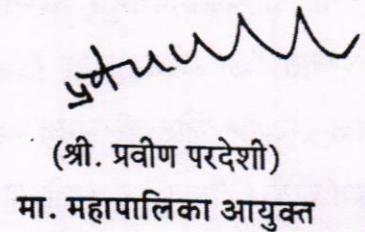 (श्री. प्रवीण परदेशी)
मा. महापालिका आयुक्त